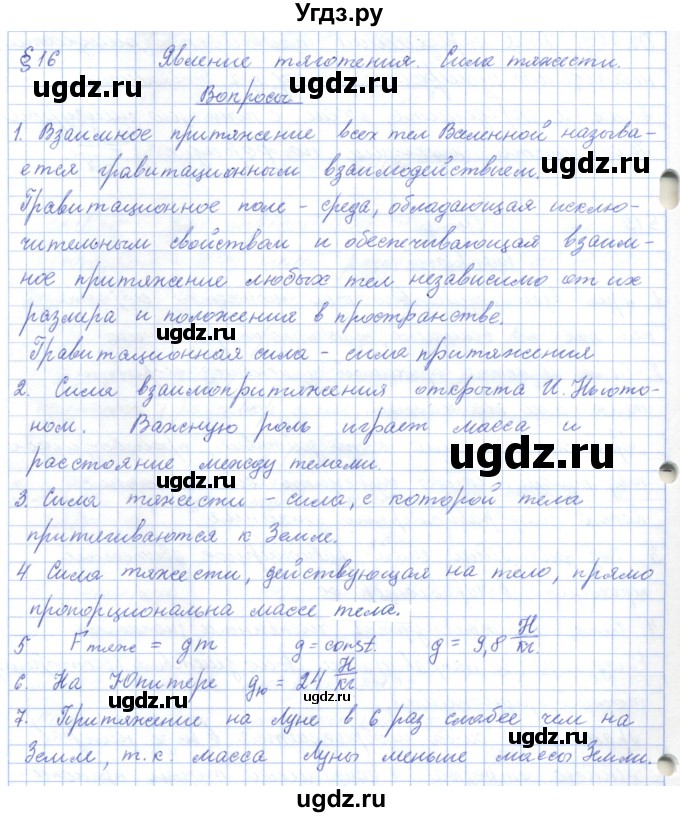 Угдз.ру
§ 16 Явление тяготения. Сила тяжести.
ugdz.ru ugdz.ru
Вопросы
1. Взаимное притяжение всех тел Вселенной называ-
ется гравитационным взаимодействием.
ugdz.ru
Гравитационное поле - среда, обладающая исклю-
чительным свойствам и обеспечивающая взаим-
ное притяжение любых тел независимо от их
размера и положения в пространстве.
ugdz.ru
Гравитационная сила - сила притяжения
2. Сила взаимопритяжения открыта И. Ньюто-
ном. Важную роль играет масса и
ugdz.ru
расстояние между телами.
3. Сила тяжести - сила, с которой тела
притягиваются к Земле.
4 Сила тяжести, действующая на тело, прямо
пропорциональна массе тела.
ugdz.ru
5 Fтяж = gm g = const. g = 9,8 Н/кг
6. На Юпитере gю = 24 Н/кг
ugdz.ru ugdz.ru
7. Притяжение на Луне в 6 раз слабее чем на
Земле, т.к. масса Луны меньше массы Земли.
ugdz.ru
ugdz.ru